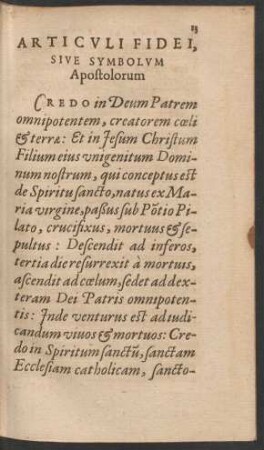 13
ARTICVLI FIDEI,
SIVE SYMBOLVM
Apostolorum
CREDO in Deum Patrem
omnipotentem, creatorem cœli
& terræ: Et in Jesum Christum
Filium eius vnigenitum Domi-
num nostrum, qui conceptus est
de Spiritu sancto, natus ex Ma-
ria virgine, paßus sub Põtio Pi-
lato, crucifixus, mortuus & se-
pultus: Descendit ad inferos,
tertia die resurrexit à mortuis,
ascendit ad cœlum, sedet ad dex-
teram Dei Patris omnipoten-
tis: Inde venturus est ad iudi-
candum viuos & mortuos: Cre-
do in Spiritum sanctũ, sanctam
Ecclesiam catholicam, sancto-